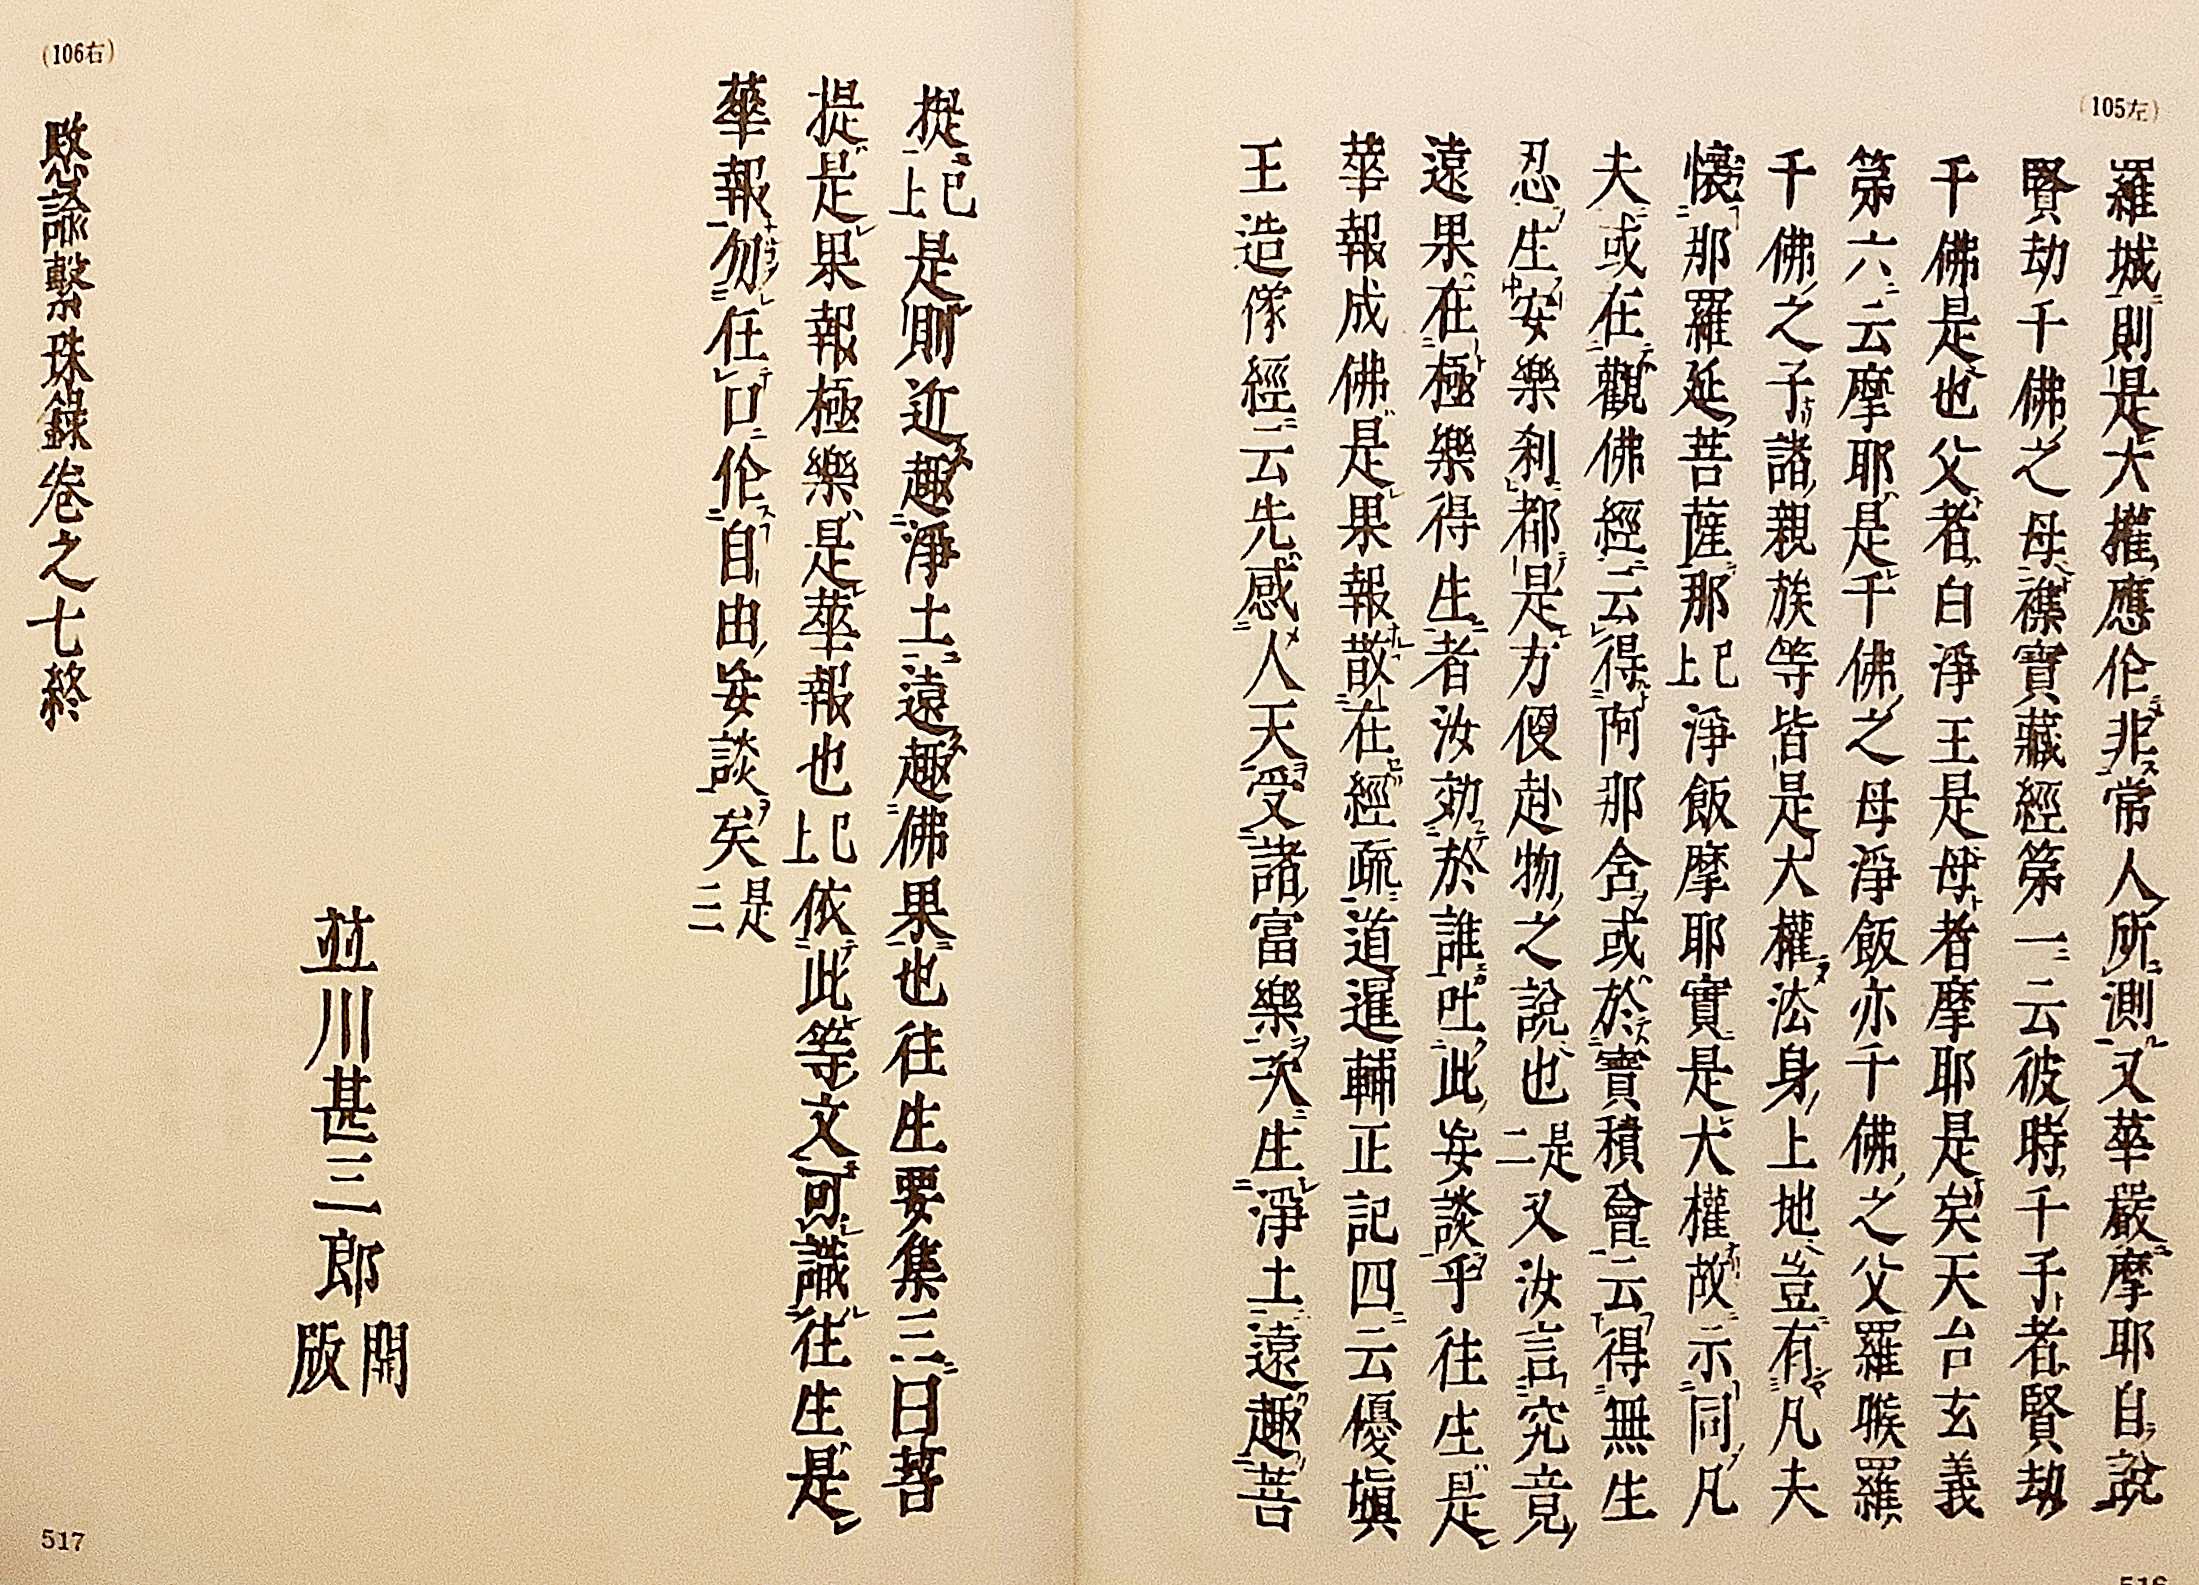 (105左)
羅城則是大權應伦非常人所測又華嚴摩耶自說
賢劫千佛之母襍寶藏經第一云彼時千子者賢劫
千佛是也父者白淨王是母者摩耶是矣天台玄義
第六云摩耶是千佛之母淨飯亦千佛之父羅睺羅
千佛之子諸親族等皆是大權法身上地豈有凡夫
懷那羅延菩薩那已上淨飯摩耶實是大權故示同凡
夫或在觀佛經云得阿那含或於寶積會云得無生
忍生安樂刹都是方便赴物之說也是二又汝言究竟
遠果在極樂得生者汝効於誰吐此妄談乎往生是
華報成佛是果報散在經疏道暹輔正記四云優塡
王造像經云先感人天受諸富樂次生淨土遠趣菩
提已上是則近趣淨土遠趣佛果也往生要集三曰菩
提是果報極樂是華報也已上依此等文可識往生是
華報勿任口伦自由妄談矣是三
並川甚三郎開版
(106右)
愍諭繫珠錄卷之七終
517